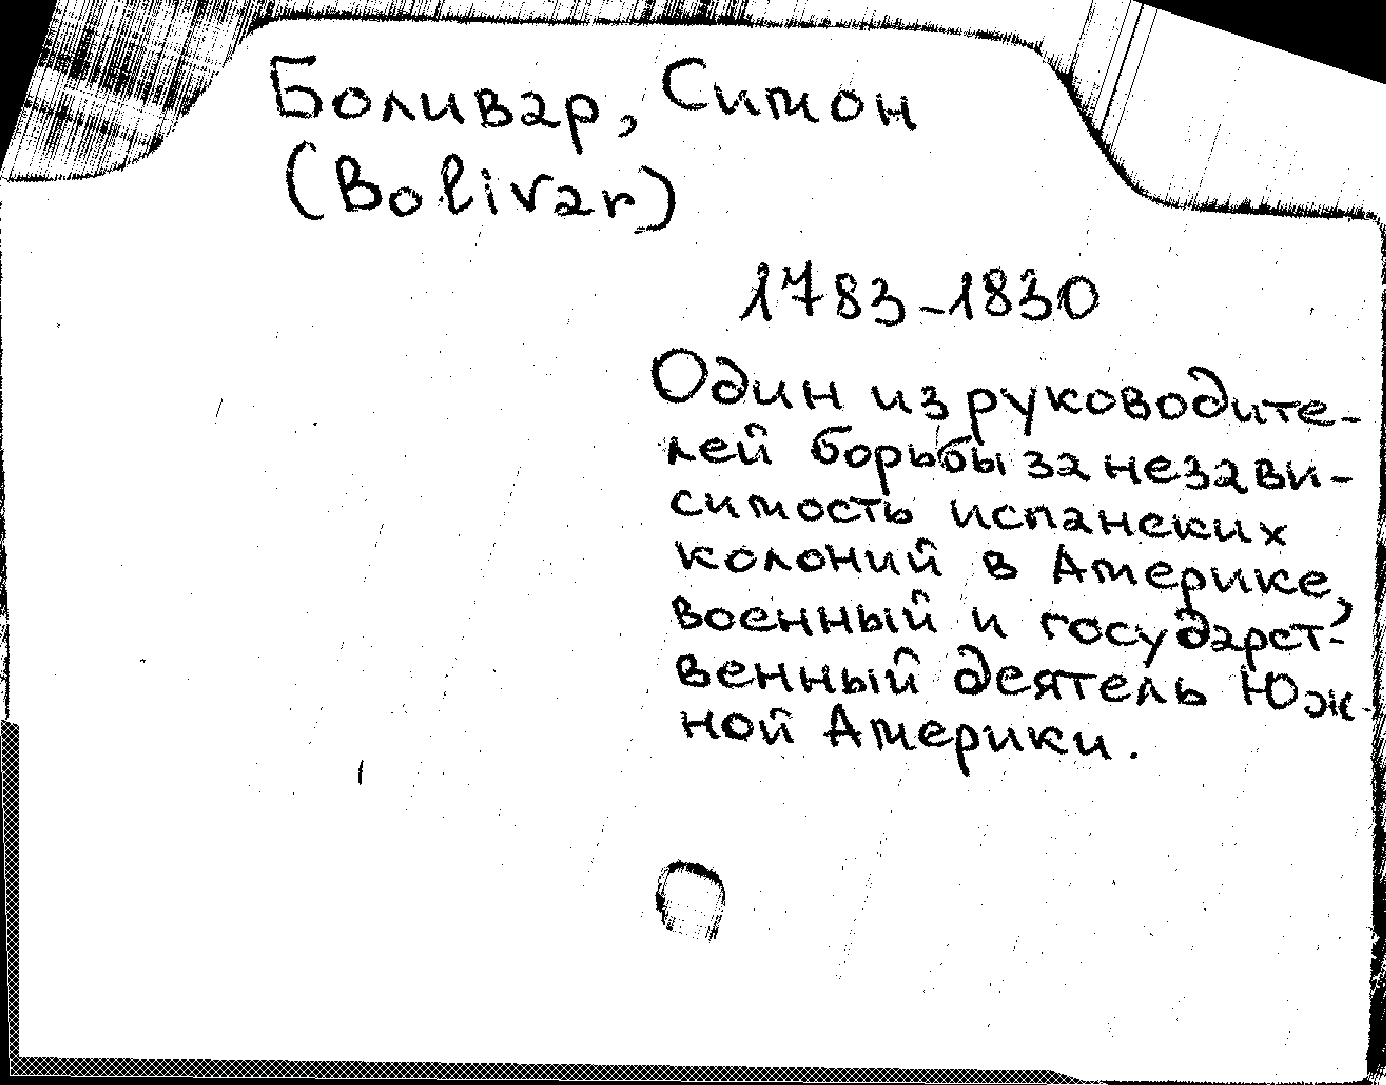 Боливар, Симон
(Bolivar)
1783-1830
Один из руководите-
лей борьбы за незави-
симость испанских
колоний в Америке,
военный и государст-
венный деятель Юж-
ной Америки.